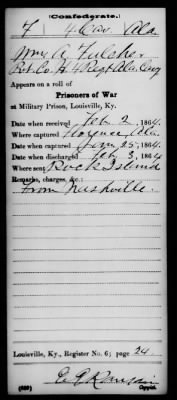 Confederate.
F 4 Cav. Ala.
Wm A. Fulcher
Pvt. Co. H 4 Regt Ala. Cavy
Appears on a roll of
Prisoners of War
at Military Prison, Louisville, Ky.
Date when received Feb 2, 1864.
Where captured Florence Ala.
Date when captured Jan 25, 1864.
Date when discharged Feb 3, 1864
Where sent Rock Island
Remarks, charges, &c.:
From Nashville.
Louisville, Ky., Register No. 6; page 24
Copyist.